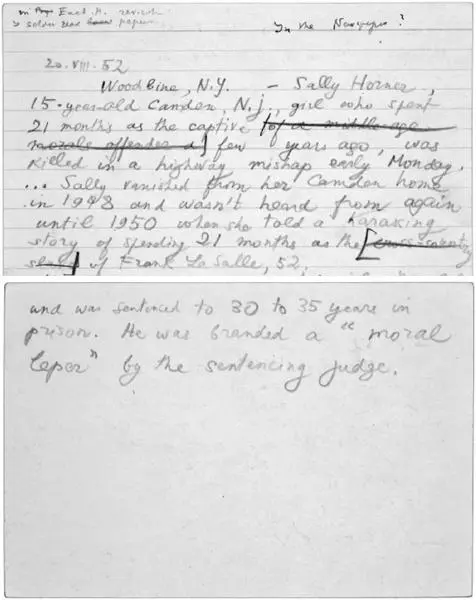 in Encl. H. revisit
> solen dear papers
In the Newspaper ?
20. VIII. 52
Woodbine, N.Y. – Sally Horner,
15-year-old Camden, N.j., girl who spent
21 months as the captive of a middle-age
morals offender a few years ago, was
killed in a highway mishap early Monday.
... Sally vanished from her Camden home
in 1948 and wasn't heard from again
until 1950 when she told a harassing
story of spending 21 months as the [cross-country
slave] of Frank La Salle, 52.
and was sentenced to 30 to 35 years in
prison. He was branded a "moral
leper" by the sentencing judge.